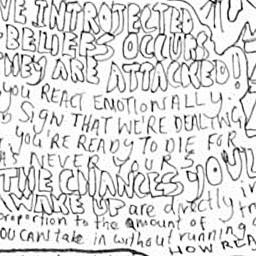 VE INTROJECTED
BELIEFS OCCURS
THEY ARE ATTACKED!
YOU REACT EMOTIONALLY.
SIGN THAT WE'RE DEALING
YOU'RE READY TO DIE FOR
S NEVER YOURS
THE CHANCES YOU'L
WAKE UP are directly in
proportion to the amount of
YOU CAN take in without running
HOW REA